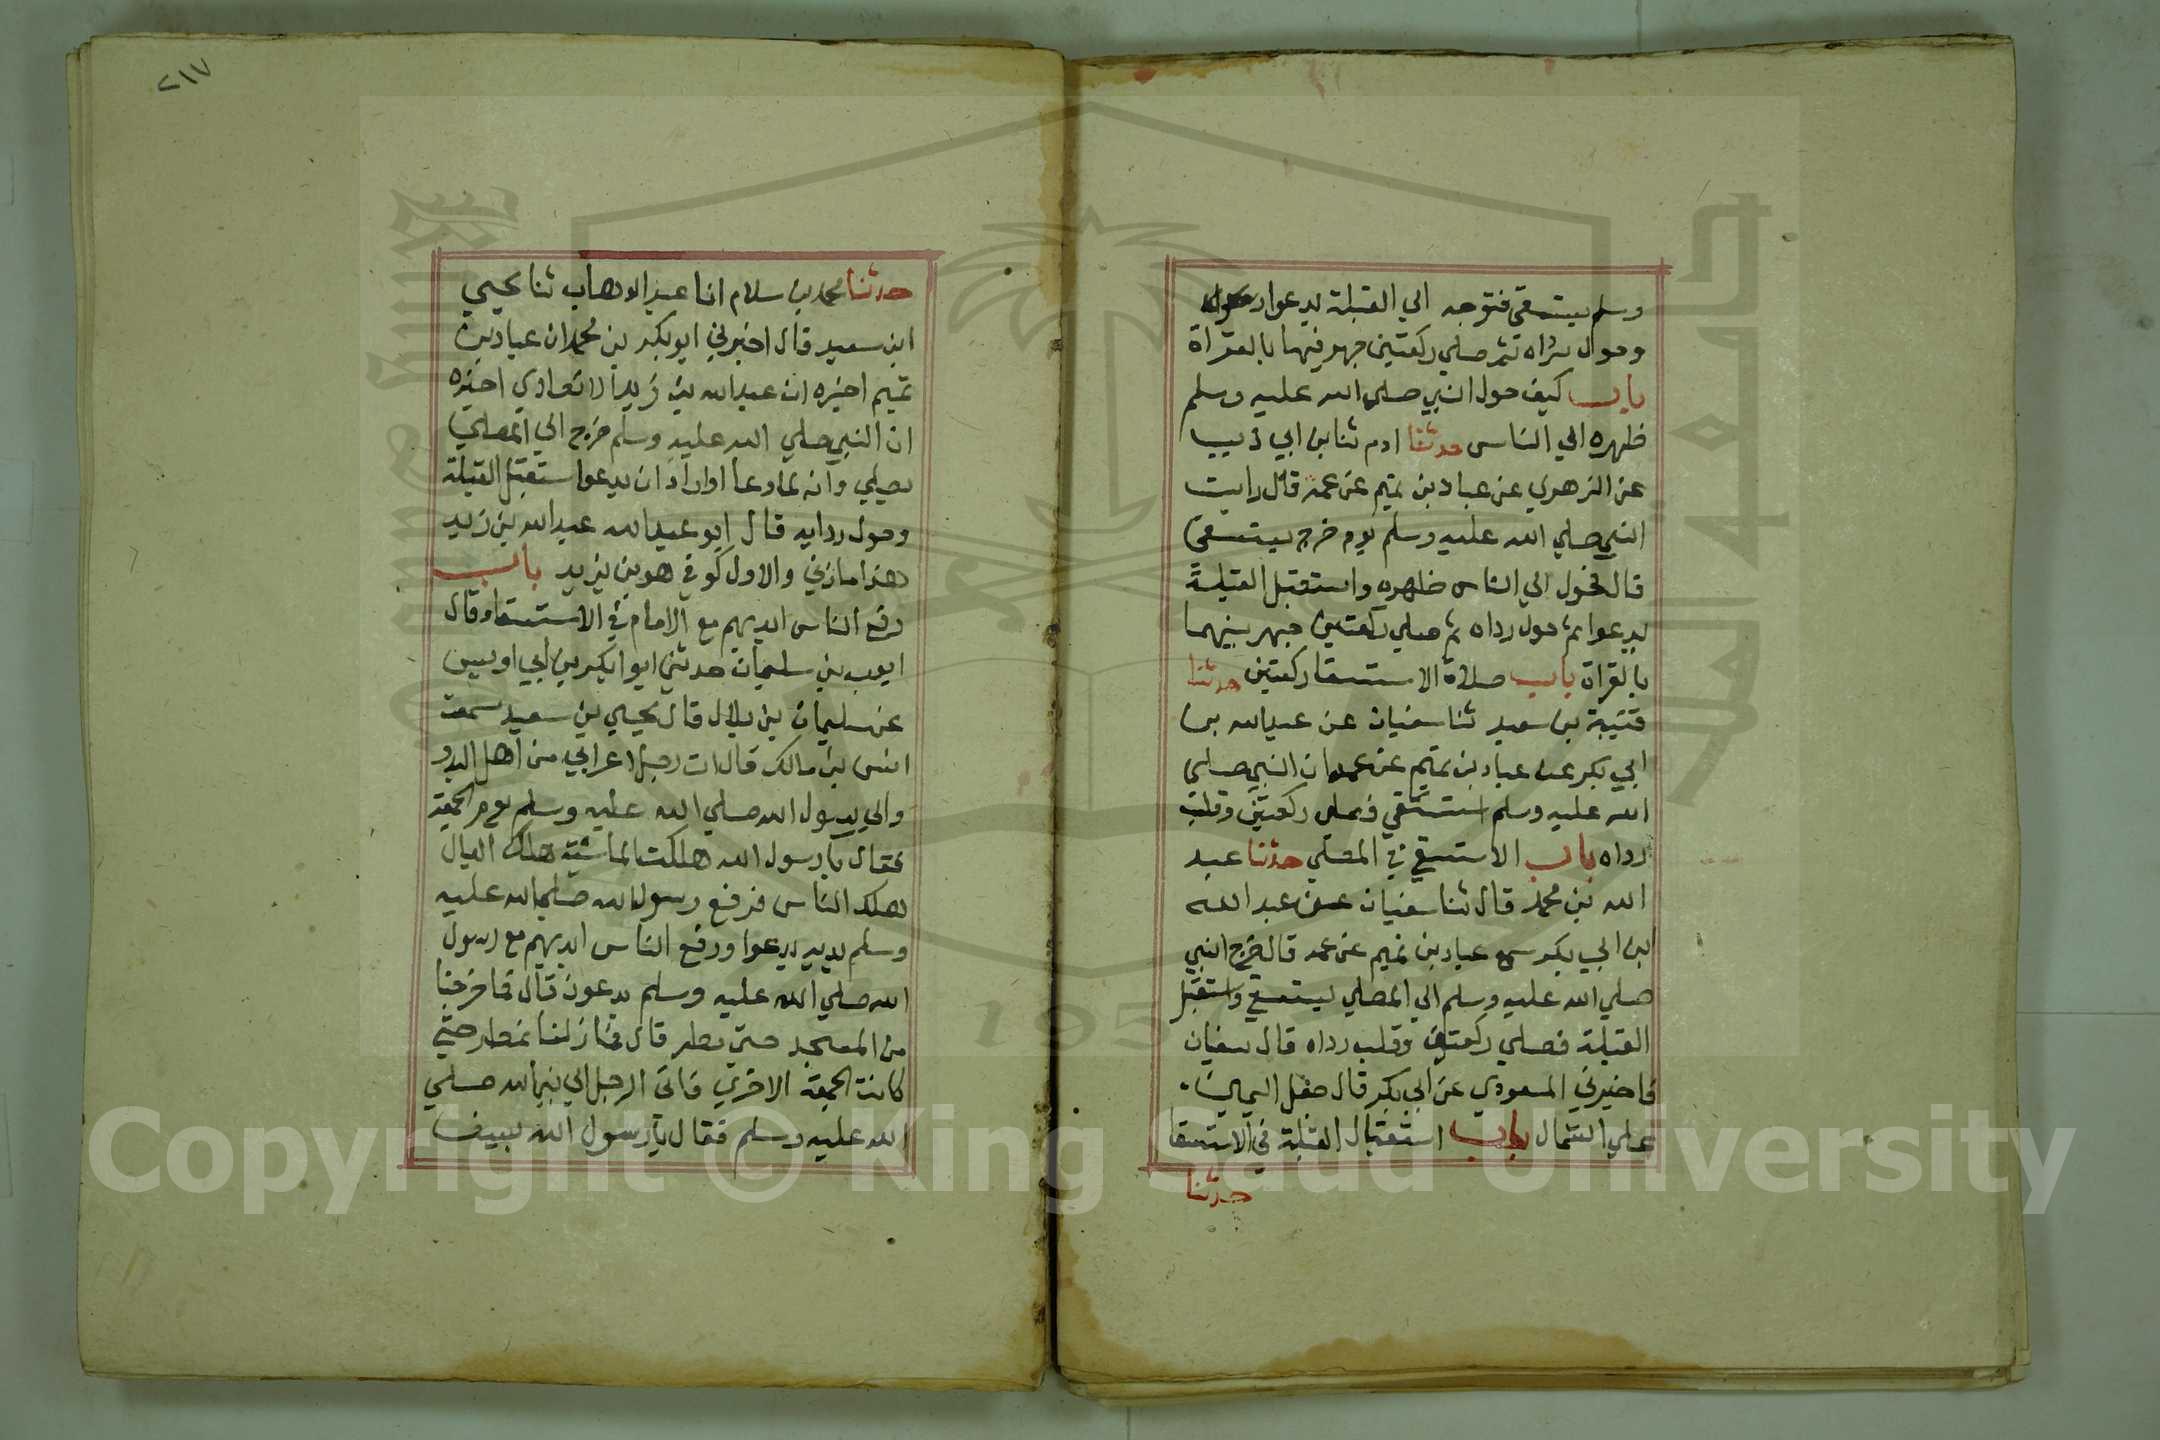 وسلم يستسقي فتوجه الي القبلة يدعوا
وحول رداه ثم صلي ركعتين جهر فيهما بالقراة
باب كيف حول النبي صلي الله عليه وسلم
ظهره الي الناس حدثنا ادم ثنا بن ابي ذيب
عن الزهري عن عباد بن تميم عن عمه قال رايت
النبي صلي الله عليه وسلم يوم خرج يستسقي
قال فحول الي الناس ظهره واستقبل القبلة
يدعوا ثم حول رداه ثم صلي ركعتين جهر بينهما
بالقراة باب صلاة الاستسقا ركعتين حدثنا
قتيبة بن سعيد ثنا سفيان عن عبدالله بن
ابي بكر عن عباد بن تميم عن عمه ان النبي صلي
الله عليه وسلم استسقي فصلي ركعتين وقلب
رداه باب الاستسقي في المصلي حدثنا عبد
الله بن محمد قال ثنا سفيان عن عبد الله
ابن ابي بكر سمع عباد بن تميم عن عمه قال خرج النبي
صلي الله عليه وسلم الي المصلي يستسقي واستقبل
القبلة فصلي ركعتين وقلب رداه قال سفيان
فاخبرني المسعودي عن ابي بكر قال جعل اليمين
علي الشمال باب استقبال القبلة في الاستسقا
حدثنا
٢١٧
حدثنا محمد بن سلام انا عبد الوهاب ثنا يحيي
ابن سعيد قال اخبرني ابو بكر بن محمد ان عباد بن
تميم اخبره ان عبدالله بن زيد الانصاري اخبره
ان النبي صلي الله عليه وسلم خرج الي المصلي
يصلي وانه لما دعا اواراد ان يدعوا استقبل القبلة
وحول ردايه قال ابو عبدالله عبدالله بن زيد
هذا مازني والاول كوفي هو بن يزيد باب
رفع الناس ايديهم مع الامام في الاستسقا وقال
ايوب بن سليمان حدثني ابوا بكر بن ابي اويس
عن سليمان بن بلال قال يحيي بن سعيد سمعت
انس بن مالك قال ات رجل اعرابي من اهل البدو
والي رسول الله صلي الله عليه وسلم يوم الجمعة
فقال يا رسول الله هلكت الماشية هلك العيال
هلك الناس فرفع رسول الله صلي الله عليه
وسلم يديه يدعوا ورفع الناس ايديهم مع رسول
الله صلي الله عليه وسلم يدعون قال فما خرجنا
من المسجد حتي مطر قال فما زلنا نمطر حتي
كانت الجمعة الاخري فاتي الرجل الي نبي الله صلي
الله عليه وسلم فقال يا رسول الله
Copyright © King Saud University
1957